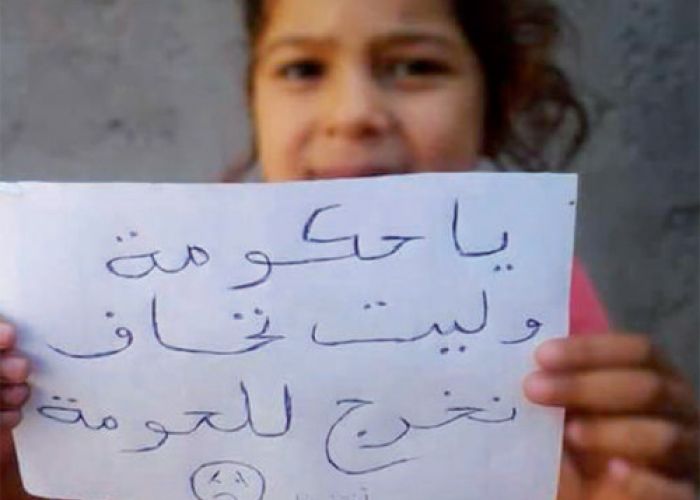 يا حكومة
وليت نخاف
نخرج للحومة